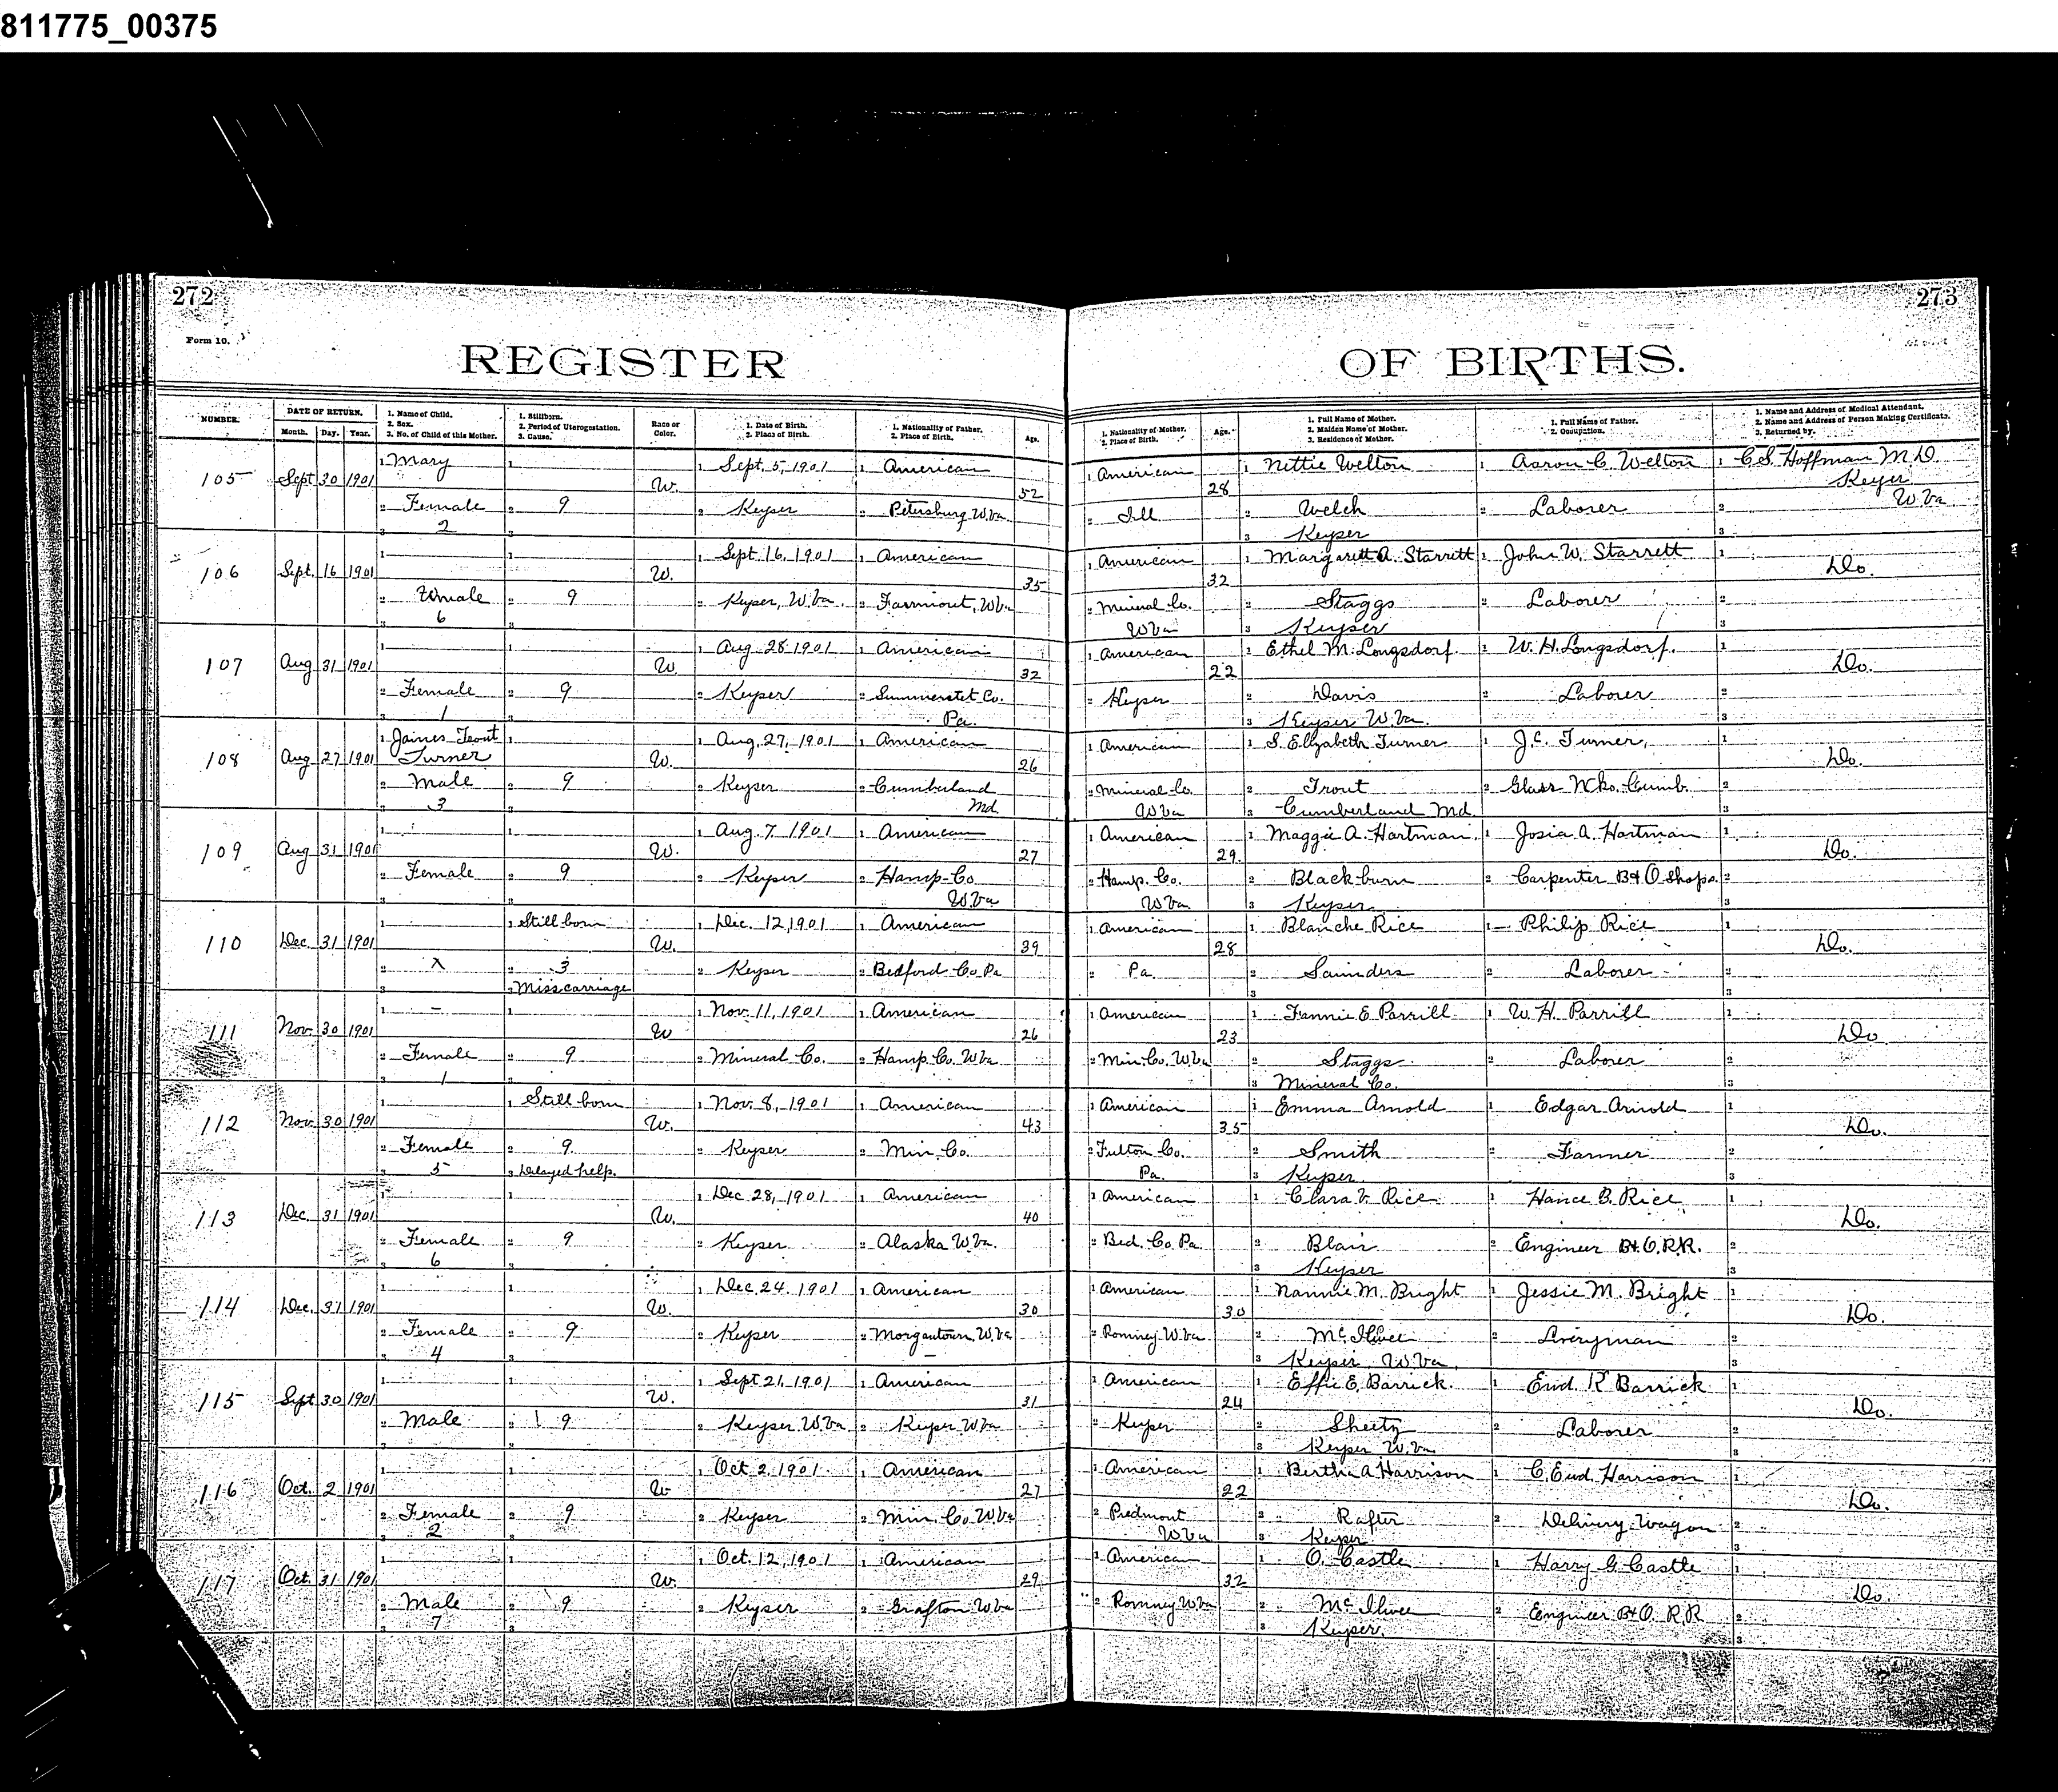 811775_00375
272
273
Form 10.
REGISTER OF BIRTHS.
NUMBER.
DATE OF RETURN.
Month. Day. Year.
1. Name of Child.
2. Sex.
3. No. of Child of this Mother.
1. Stillborn.
2. Period of Uterogestation.
3. Cause.
Race or Color.
1. Date of Birth.
2. Place of Birth.
1. Nationality of Father.
2. Place of Birth.
Age.
1. Nationality of Mother.
2. Place of Birth.
Age.
1. Full Name of Mother.
2. Maiden Name of Mother.
3. Residence of Mother.
1. Full Name of Father.
2. Occupation.
1. Name and Address of Medical Attendant.
2. Name and Address of Person Making Certificate.
3. Returned by.
105 Sept 30 1901 1 Mary 1 W. 1 Sept. 5, 1901 1 American 52 1 American 28 1 Nettie Welton 1 Aaron C. Welton 1 C.S. Hoffman M.D.
Keyer
2 Female 2 9 2 Keyser 2 Petersburg W.Va. 2 Ill 2 Welch 2 Laborer 2 W Va
3 2 3 3 Keyser 3
106 Sept. 16 1901 1 1 W. 1 Sept. 16, 1901 1 American 35 1 American 32 1 Margarett A. Starrett 1 John W. Starrett 1 Do.
2 2 9 2 Keyser, W.Va. 2 Fairmount, W.Va 2 Mineral Co. 2 Staggs 2 Laborer 2
3 6 3 W Va 3 Keyser 3
107 Aug 31 1901 1 1 W. 1 Aug. 28 1901 1 American 32 1 American 22 1 Ethel M. Longsdorf. 1 W. H. Longsdorf. 1 Do.
2 Female 2 9 2 Keyser 2 Summerstet Co. 2 Keyser 2 Davis 2 Laborer 2
3 1 3 Pa. 3 Keyser W.Va. 3
108 Aug 27 1901 1 James Trout 1 W. 1 Aug. 27, 1901 1 American 26 1 American 1 S. Elizabeth Turner 1 J.C. Turner, 1 Do.
Turner
2 Male 2 9 2 Keyser 2 Cumberland 2 Mineral Co. 2 Trout 2 Glass Wks. Cumb. 2
3 3 3 Md. W Va 3 Cumberland Md. 3
109 Aug 31 1901 1 1 W. 1 Aug. 7 1901 1 American 27 1 American 29. 1 Maggie A. Hartman, 1 Josia A. Hartman 1 Do.
2 Female 2 9 2 Keyser 2 Hamp. Co. 2 Hamp. Co. 2 Blackburn 2 Carpenter B&O Shops. 2
3 3 W Va W Va 3 Keyser 3
110 Dec. 31 1901 1 1 Still born W. 1 Dec. 12, 1901 1 American 39 1 American 28 1 Blanche Rice 1 Philip Rice 1 Do.
2 X 2 3 2 Keyser 2 Bedford Co. Pa 2 Pa. 2 Saunders 2 Laborer 2
3 3 Misscarriage 3 3
111 Nov. 30 1901 1 - 1 W 1 Nov. 11, 1901 1 American 26 1 American 23 1 Fannie E Parrill 1 W. H. Parrill 1 Do
2 Female 2 9 2 Mineral Co. 2 Hamp. Co. W.Va 2 Min. Co. W.Va 2 Staggs 2 Laborer 2
3 1 3 3 Mineral Co. 3
112 Nov. 30 1901 1 1 Still born W. 1 Nov. 8, 1901 1 American 43 1 American 35 1 Emma Arnold 1 Edgar Arnold 1 Do.
2 Female 2 9. 2 Keyser 2 Min. Co. 2 Fulton Co. 2 Smith 2 Farmer 2
3 5 3 Delayed help. Pa. 3 Keyser 3
113 Dec. 31 1901 1 1 W. 1 Dec 28, 1901 1 American 40 1 American 1 Clara V. Rice 1 Hance B. Rice 1 Do.
2 Female 2 9 2 Keyser 2 Alaska W.Va. 2 Bed. Co. Pa 2 Blair 2 Engineer B&O.R.R. 2
3 6 3 3 Keyser 3
114 Dec. 31 1901 1 1 W. 1 Dec. 24. 1901 1 American 30 1 American 30 1 Nannie M. Bright 1 Jessie M. Bright 1 Do.
2 Female 2 9 2 Keyser 2 Morgantown, W.Va 2 Romney W.Va 2 2 Liveryman 2
3 4 3 3 Keyser, W.Va. 3
115 Sept 30 1901 1 1 W. 1 Sept 21, 1901 1 American 31 1 American 24 1 Effie E. Barrick. 1 Ewd. K Barrick 1 Do.
2 Male 2 9 2 Keyser W.Va 2 Keyser W.Va 2 Keyser 2 Sheetz 2 Laborer 2
3 3 3 Keyser W.Va 3
116 Oct. 2 1901 1 1 W 1 Oct 2, 1901 1 American 27 1 American 22 1 Bertha A Harrison 1 C. Ewd. Harrison 1 Do.
2 Female 2 9 2 Keyser 2 Min. Co. W.Va 2 Piedmont 2 Rafter 2 Delivery Wagon 2
3 2 3 W Va 3 Keyser 3
117 Oct. 31 1901 1 1 W. 1 Oct. 12, 1901 1 American 29 1 American 32 1 O. Castle 1 Harry G. Castle 1 Do
2 Male 2 9 2 Keyser 2 Grafton W.Va 2 Romney W.Va 2 2 Engineer B&O. R.R 2
3 7 3 3 Keyser. 3